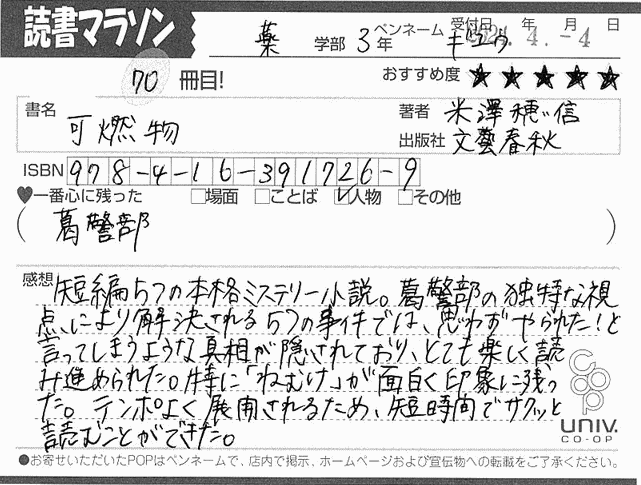 読書マラソン
薬 学部 3年 ペンネーム ギユウ
受付日 年 月 日
4.-4
70 冊目!
おすすめ度 ★★★★★
書名 可燃物
著者 米澤穂信
出版社 文藝春秋
ISBN 978-4-16-391726-9
♥一番心に残った □場面 □ことば ☑人物 □その他
(葛警部)
感想 短編5つの本格ミステリー小説。葛警部の独特な視
点により解決される5つの事件では、思わずやられた!と
言ってしまうような真相が隠されており、とても楽しく読
み進められた。特に「ねむけ」が面白く印象に残っ
た。テンポよく展開されるため、短時間でサクッと
読むことができた。
coop
UNIV.
CO-OP
●お寄せいただいたPOPはペンネームで、店内で掲示、ホームページおよび宣伝物への転載をご了承ください。